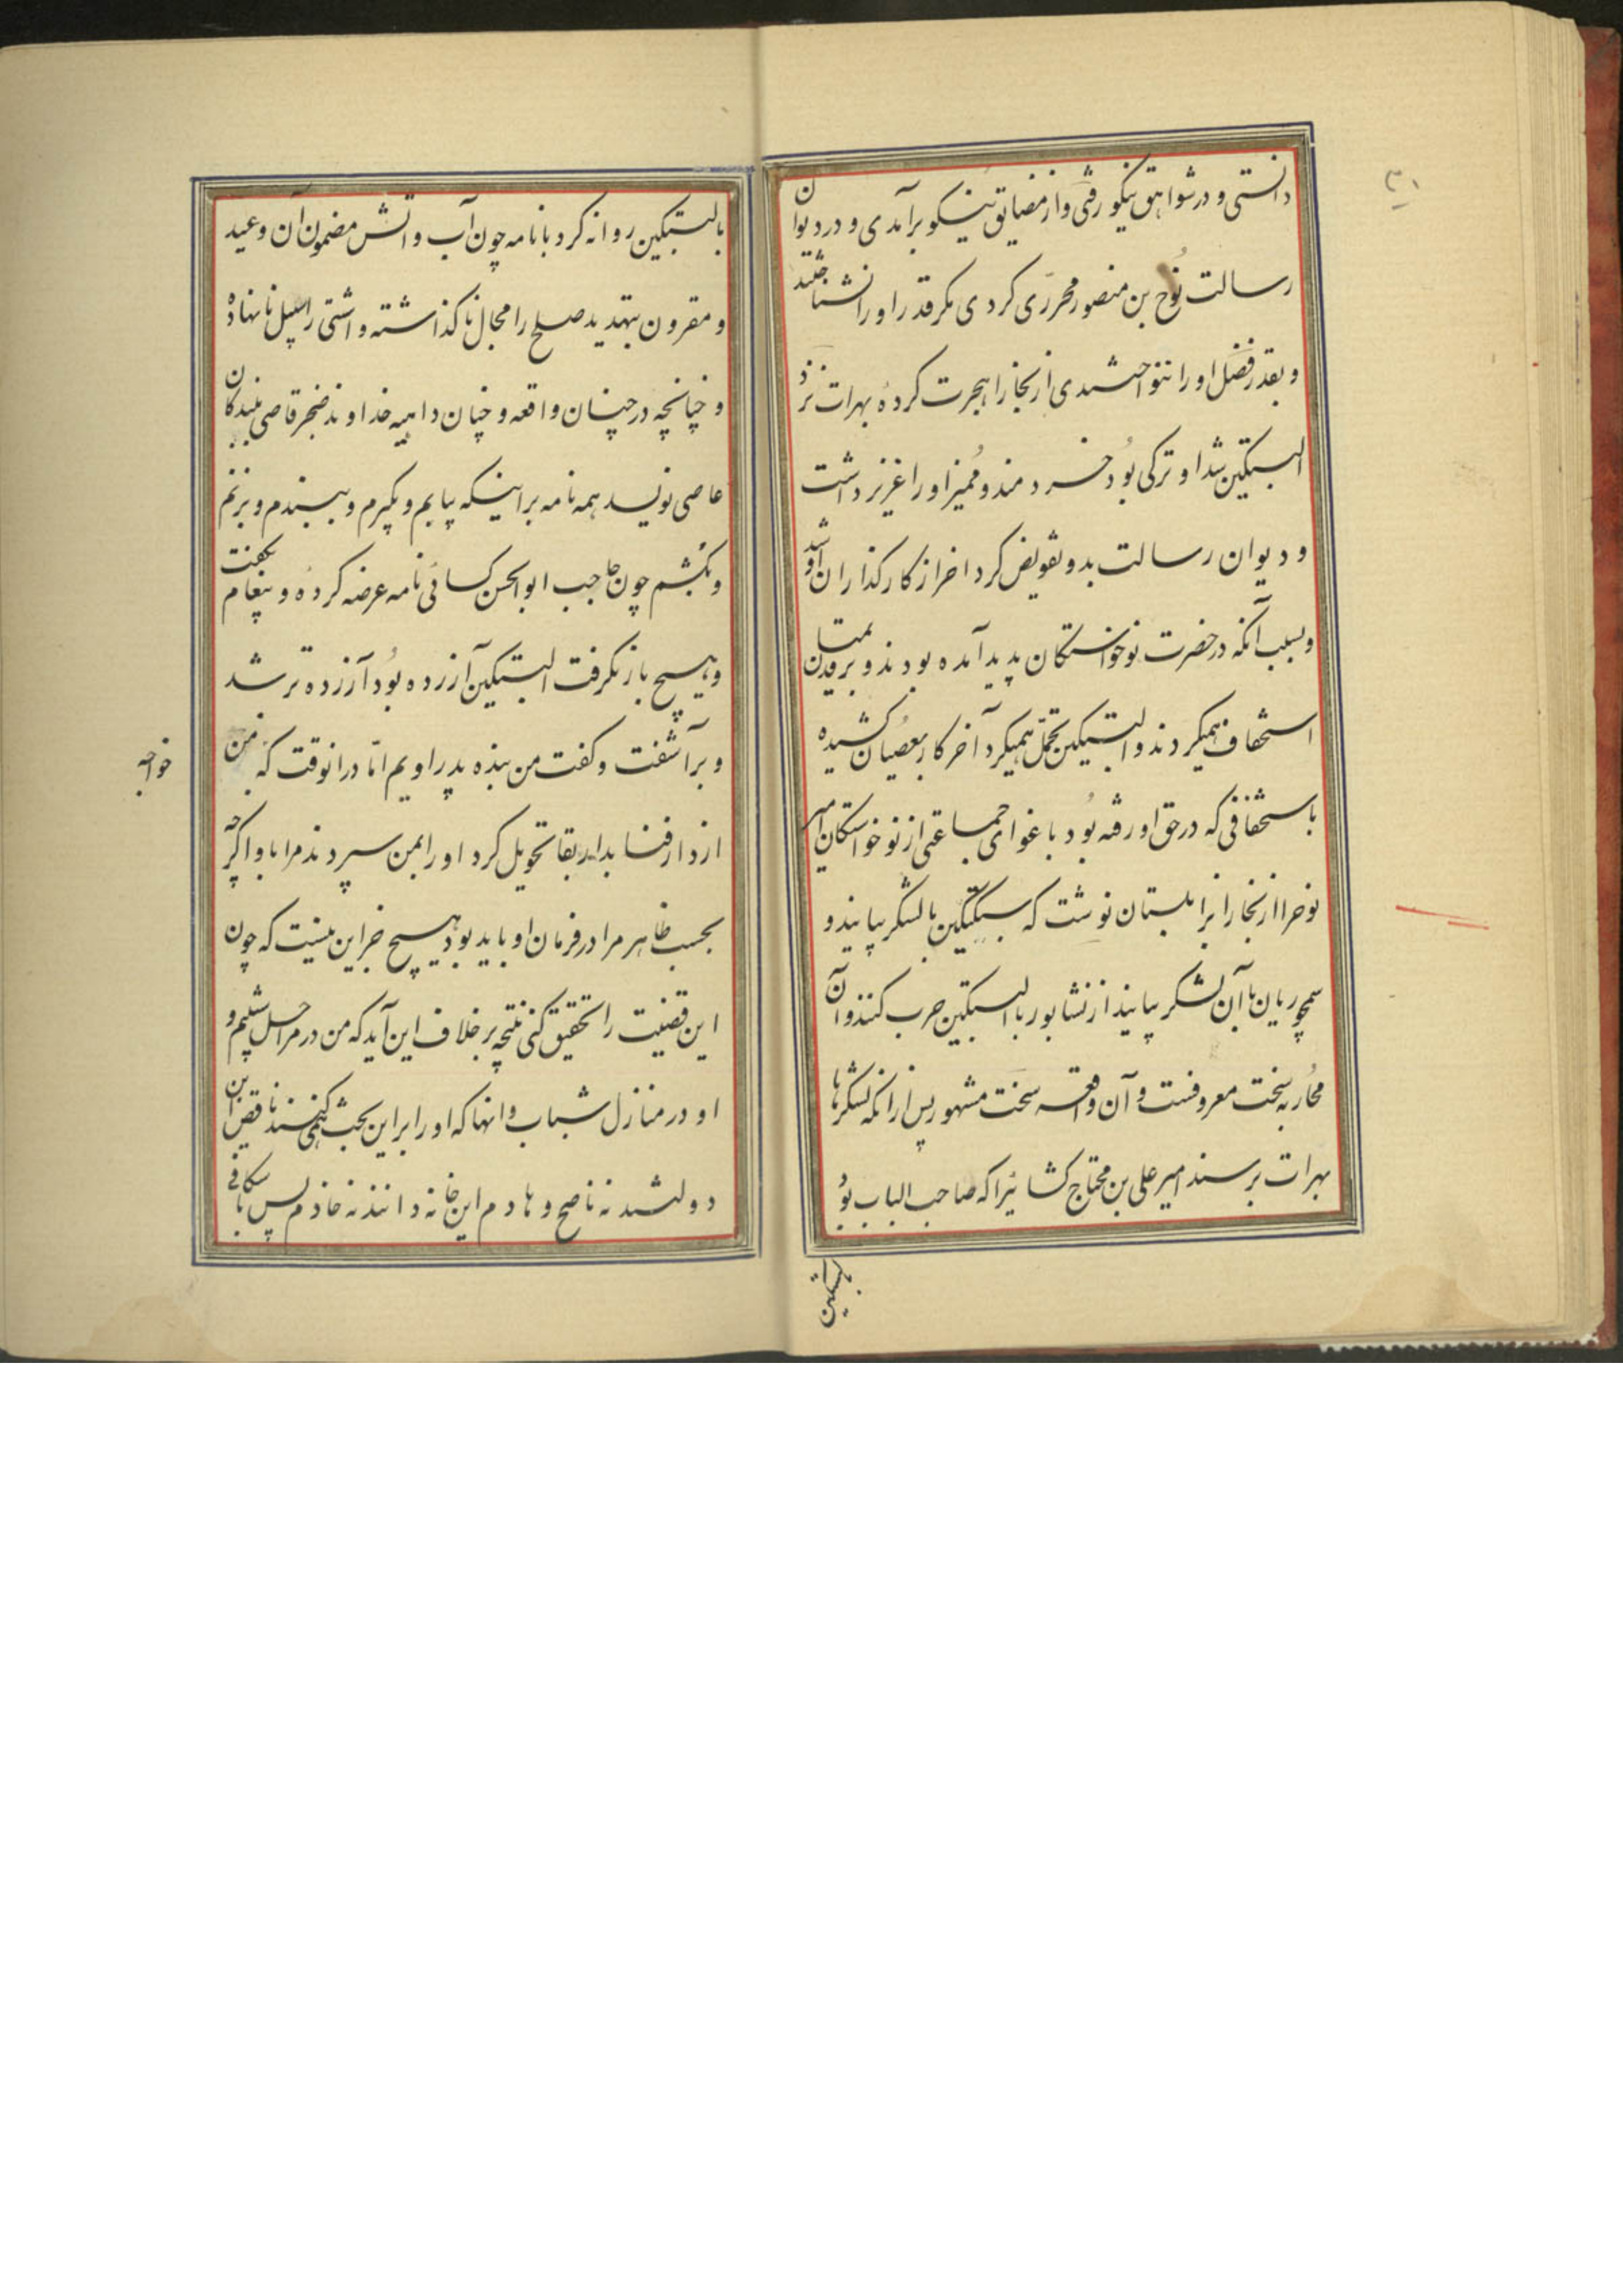 ۳۱
دانستی و در شواهق نیکو رفتی و از مضایق نیکو برآمدی و در دیوان
رسالت نوح بن منصور محرّری کردی مگر قدر او را نشناختند
و بقدر فضل او را ننواختندی از بخارا هجرت کرده بهرات نزد
البتکین شد او ترکی بود خردمند و ممیز او را عزیز داشت
و دیوان رسالت بدو تفویض کرد اخر از کار گذاران او شد
و بسبب آنکه در حضرت نوخواستگان پدید آمده بودند و بر قدیمان
استخفاف همیکردند و البتکین تحمّل همیکرد آخر کار بعصیان کشیده
باستخفافی که در حق او رفته بود باغوای جماعتی از نوخواستگان امیر
نوح را از بخارا بزابلستان نوشت که سبکتکین با لشکر بیایند و
سمجوریان با آن لشکر بیایند از نشابور با البتکین حرب کنند و آن
محاربه سخت معروفست و آن واقعه سخت مشهور پس از انکه لشکرها
بهرات برسند امیر علی بن محتاج کشانیرا که صاحب الباب بود
بالبتکین
بالبتکین روانه کرد با نامه چون آب و اتش مضمون آن وعید
و مقرون بتهدید صلح را مجال ناگذاشته و اشتی را سبیل نانهاده
و چنانچه در چنان واقعه و چنان داهیه خداوند ضجر قاصی ببندکان
عاصی نویسد همه نامه بر اینکه بیایم و بگیرم و ببندم و بزنم
و بکشم چون حاجب ابوالحسن کسائی نامه عرضه کرده و پیغام بکفت
و هیچ بازنگرفت البتکین آزرده بود آزرده تر شد
و برآشفت و کفت من بنده پدر اویم امّا در انوقت که من
خواجه
از دار فنا بدار بقا تحویل کرد او را بمن سپردند مرا باو اگرچه
بحسب ظاهر مرا در فرمان او باید بود هیچ جز این نیست که چون
این قضیت را تحقیق کنی نتیجه بر خلاف این آید که من در مراحل شیبم و
او در منازل شباب و انها که او را بر این بحث همی‌کنند ناقض این
دولتند نه ناصح و هادم این خانه دانند نه خادم پس باسکافی